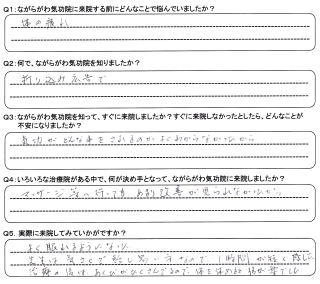 Q1：ながらがわ気功院に来院する前にどんなことで悩んでいましたか？
体の疲れ
Q2：何で、ながらがわ気功院を知りましたか？
折り込み広告で
Q3：ながらがわ気功院を知って、すぐに来院しましたか？すぐに来院しなかったとしたら、どんなことが
不安になりましたか？
気功がどんな事をされるのかよくわからなかったから
Q4：いろいろな治療院がある中で、何が決め手となって、ながらがわ気功院に来院しましたか？
マッサージ等に行っても あまり改善が見られなかったから
Q5．実際に来院してみていかがですか？
よく眠れるようになった
先生は気さくで話し易い方なので 1時間が短く感じ
治療の後は あくびがたくさんでるので、体を休める